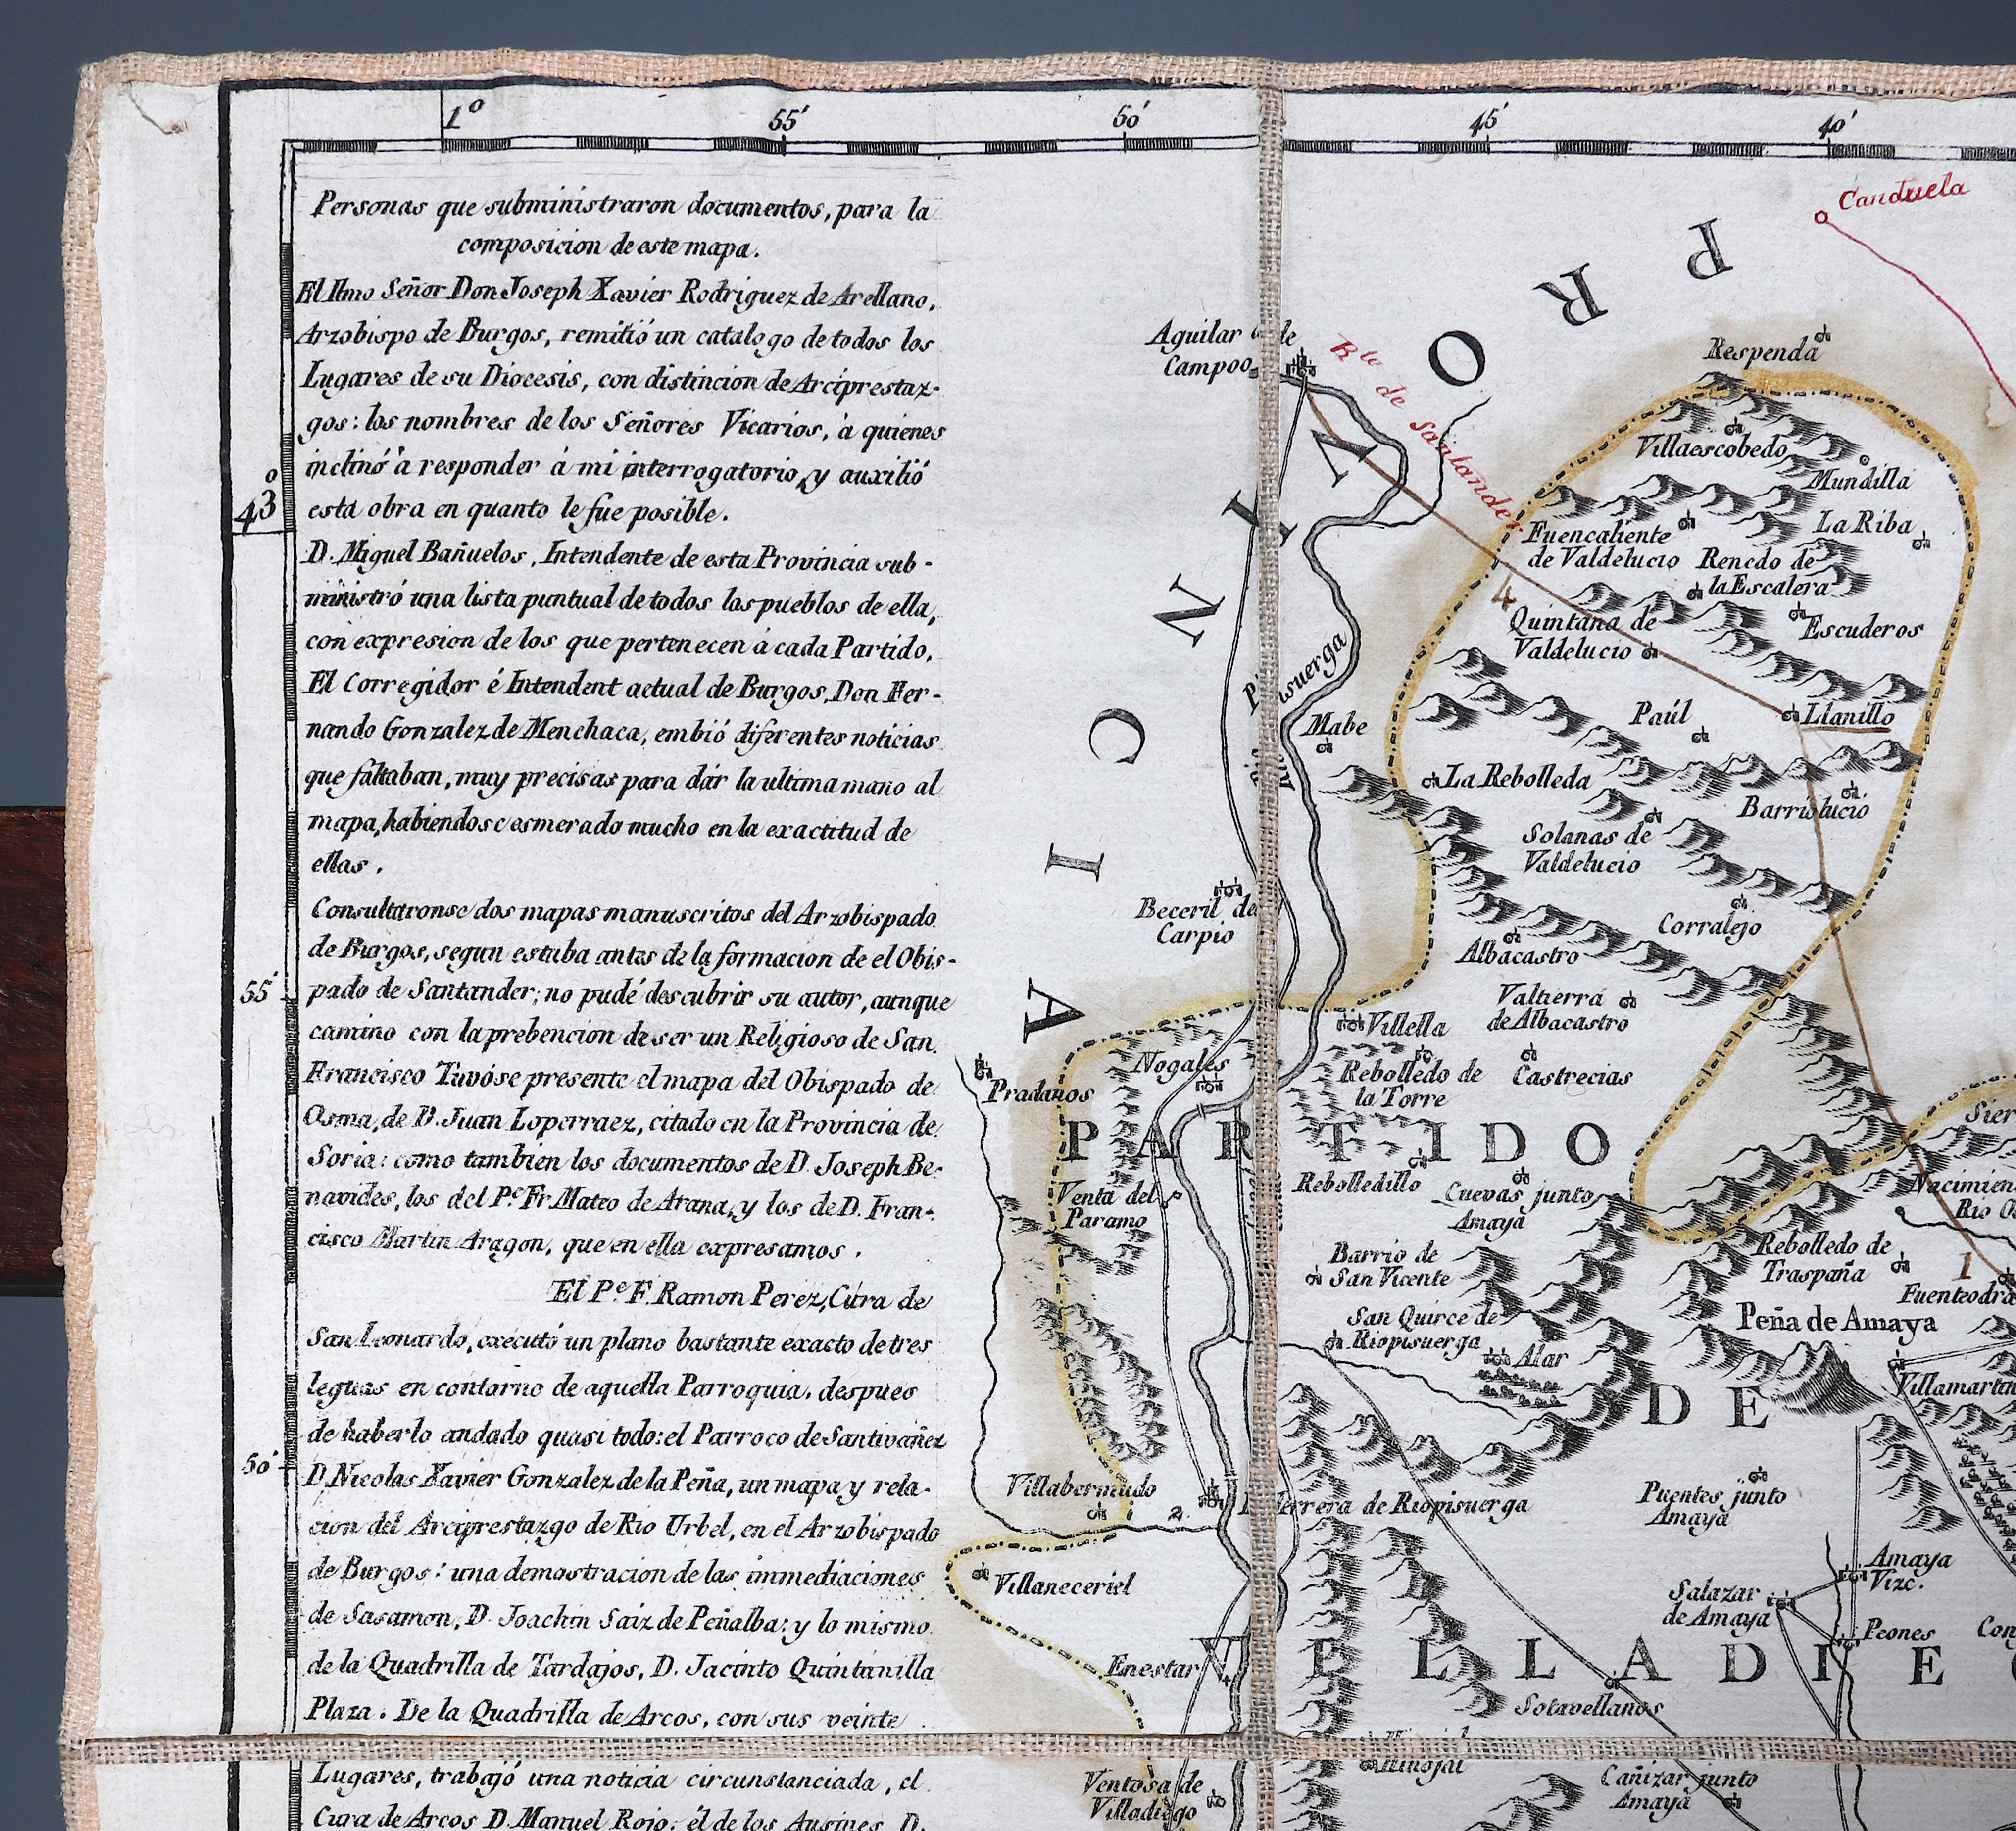 1º
55'
50'
45'
40'
43º
55'
50'
Personas que subministraron documentos, para la
composicion de este mapa.
El Ilmo Señor Don Joseph Xavier Rodriguez de Arellano,
Arzobispo de Burgos, remitió un catalogo de todos los
Lugares de su Diocesis, con distincion de Arciprestaz-
gos: los nombres de los Señores Vicarios, à quienes
inclinó à responder à mi interrogatorio, y auxilió
esta obra en quanto le fue posible.
D. Miguel Bañuelos, Intendente de esta Provincia sub-
ministró una lista puntual de todos los pueblos de ella,
con expresion de los que pertenecen à cada Partido.
El Corregidor é Intendent actual de Burgos, Don Fer-
nando Gonzalez de Menchaca, embió diferentes noticias
que faltaban, muy precisas para dár la ultima mano al
mapa, habiendose esmerado mucho en la exactitud de
ellas.
Consultaronse dos mapas manuscritos del Arzobispado
de Burgos, segun estaba antes de la formacion de el Obis-
pado de Santander; no pudé descubrir su autor, aunque
camino con la prebencion de ser un Religioso de San
Francisco Tuvóse presente el mapa del Obispado de
Osma, de D. Juan Loperraez, citado en la Provincia de
Soria: como tambien los documentos de D. Joseph Be-
navides, los del Pe. Fr. Mateo de Arana, y los de D. Fran-
cisco Martin Aragon, que en ella expresamos.
El Pe. F. Ramon Perez, Cura de
San Leonardo, executó un plano bastante exacto de tres
leguas en contorno de aquella Parroquia, despues
de haberlo andado quasi todo: el Parroco de Santivañez
D. Nicolas Xavier Gonzalez de la Peña, un mapa y rela-
cion del Arciprestazgo de Rio Urbel, en el Arzobispado
de Burgos: una demostracion de las immediaciones
de Sasamon, D. Joachin Saiz de Peñalba: y lo mismo
de la Quadrilla de Tardajos, D. Jacinto Quintanilla
Plaza. De la Quadrilla de Arcos, con sus veinte
Lugares, trabajó una noticia circunstanciada, el
Cura de Arcos D. Manuel Rojo: él de los Ausines D.
PROVINCIA
Canduela
Rte de Santander
Aguilar de
Campoo
Respenda
Villaescobedo
Mundilla
La Riba
Fuencaliente
de Valdelucio
Renedo de
la Escalera
4
Quintana de
Valdelucio
Escuderos
Rio Pisuerga
Mabe
Paúl
Llanillo
La Rebolleda
Barriolucio
Solanas de
Valdelucio
Beceril de
Carpio
Corralejo
Albacastro
Valtierra
de Albacastro
Villella
Nogales
Pradanos
Rebolledo de
la Torre
Castrecias
PARTIDO
Venta del
Paramo
Rebolledillo
Cuevas junto
Amaya
Barrio de
San Vicente
Rebolledo de
Traspaña
1
Peña de Amaya
San Quirce de
Riopisuerga
Alar
DE
Villabermudo
2
Herrera de Riopisuerga
Puentes junto
Amaya
Villaneceriel
Amaya
Vizc.
Salazar
de Amaya
Peones
Enestar
VILLADIE
Sotovellanos
Ventosa de
Villadiego
Cañizar junto
Amaya